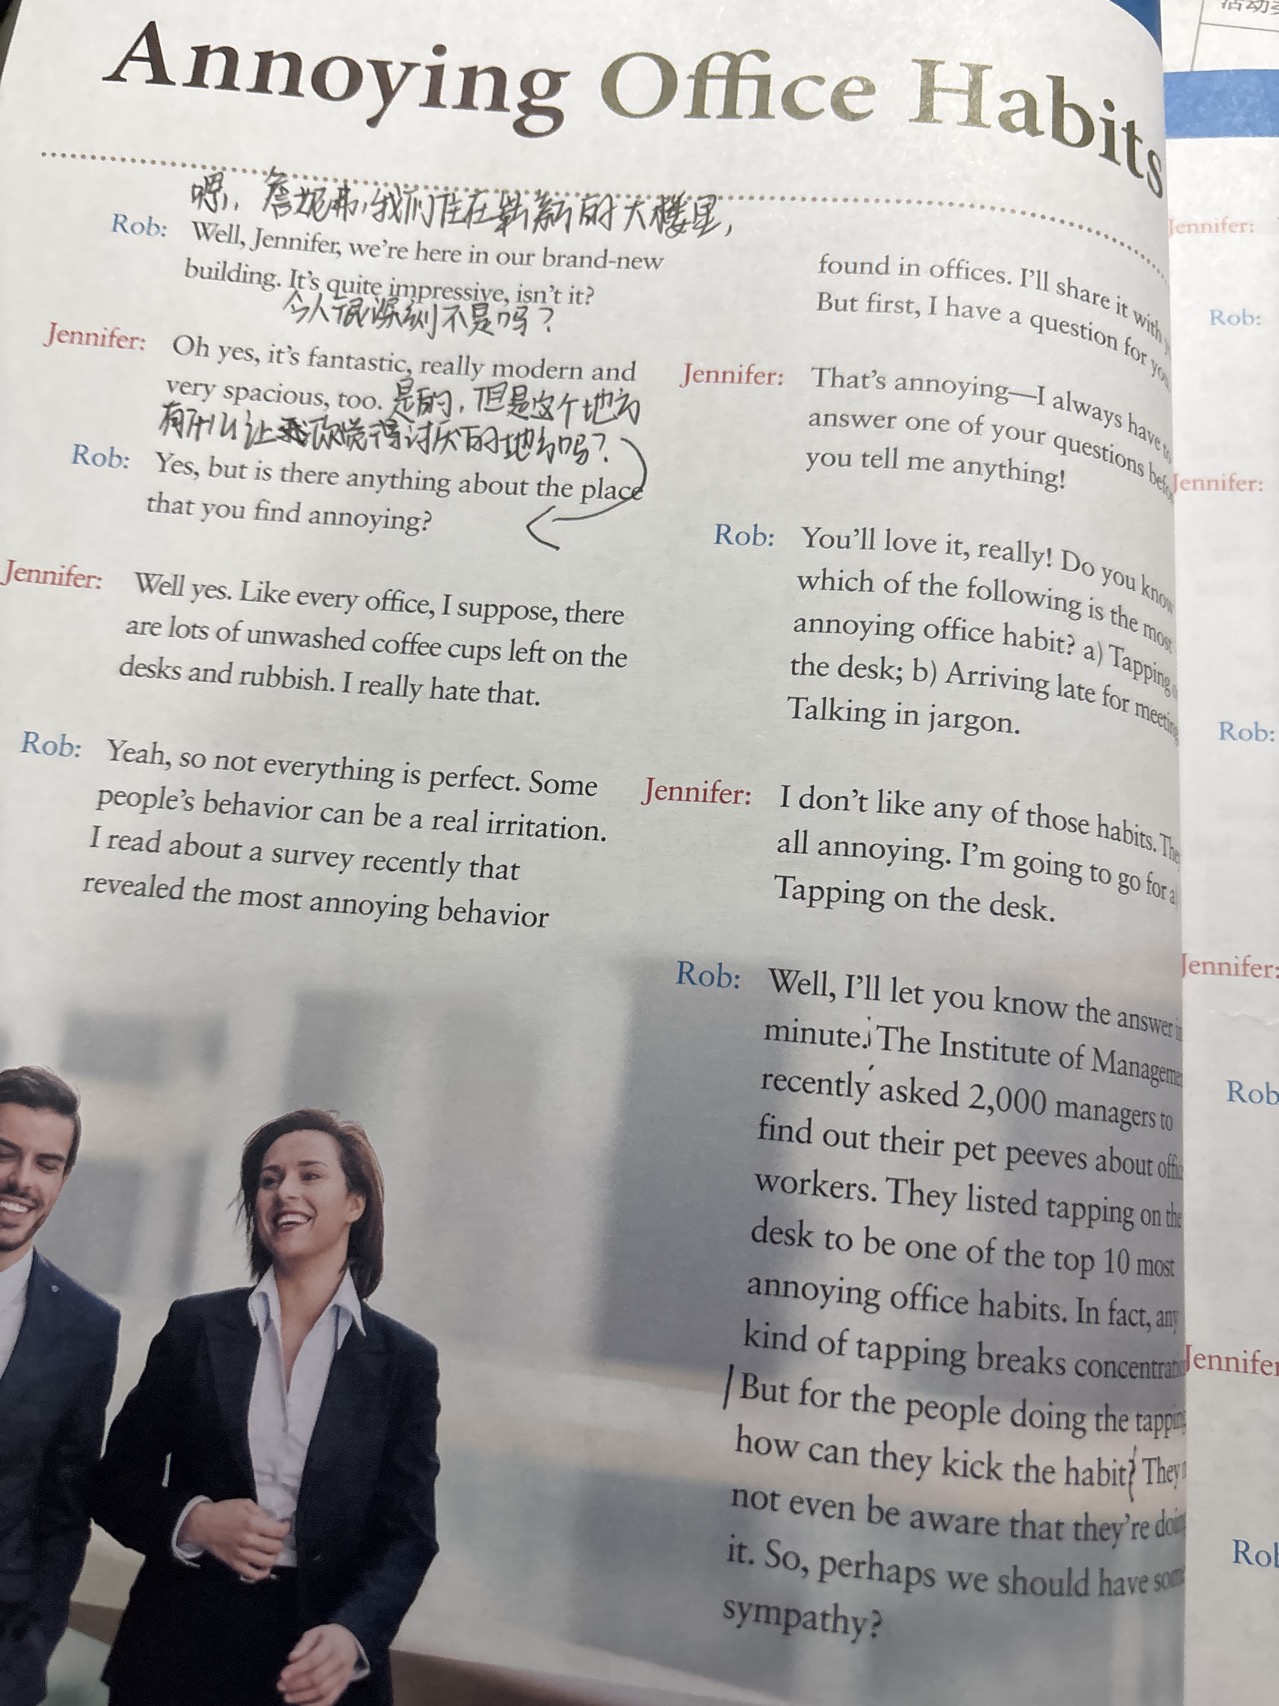 活动
Annoying Office Habits
嗯，詹妮弗，我们住在崭新的大楼里，
Rob: Well, Jennifer, we're here in our brand-new
building. It's quite impressive, isn't it?
令人很深刻不是吗？
Jennifer: Oh yes, it's fantastic, really modern and
very spacious, too. 是的，但是这个地方
有什么让你觉得讨厌的地方吗？
Rob: Yes, but is there anything about the place
that you find annoying?
Jennifer: Well yes. Like every office, I suppose, there
are lots of unwashed coffee cups left on the
desks and rubbish. I really hate that.
Rob: Yeah, so not everything is perfect. Some
people's behavior can be a real irritation.
I read about a survey recently that
revealed the most annoying behavior
found in offices. I'll share it with
But first, I have a question for you
Jennifer: That's annoying—I always have to
answer one of your questions befo
you tell me anything!
Rob: You'll love it, really! Do you know
which of the following is the most
annoying office habit? a) Tapping
the desk; b) Arriving late for meeting
Talking in jargon.
Jennifer: I don't like any of those habits. The
all annoying. I'm going to go for a
Tapping on the desk.
Rob: Well, I'll let you know the answer
minute. The Institute of Manageme
recently asked 2,000 managers to
find out their pet peeves about offi
workers. They listed tapping on the
desk to be one of the top 10 most
annoying office habits. In fact, any
kind of tapping breaks concentrati
But for the people doing the tapping
how can they kick the habit? They
not even be aware that they're doing
it. So, perhaps we should have some
sympathy?
Jennifer:
Rob:
Jennifer:
Rob:
Jennifer:
Rob
Jennifer
Rob